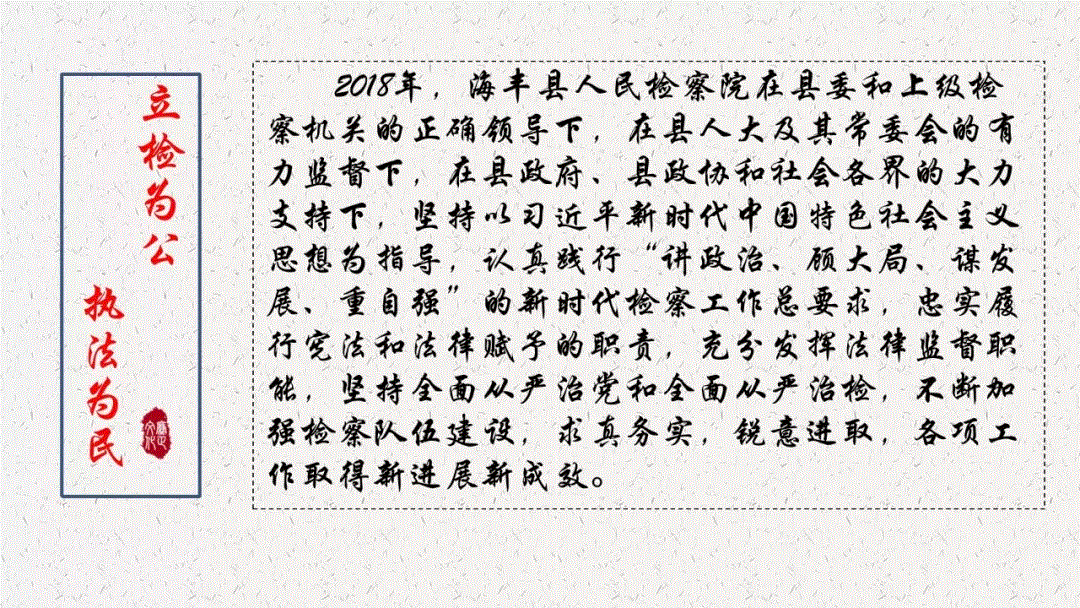 立检为公
执法为民
2018年，海丰县人民检察院在县委和上级检
察机关的正确领导下，在县人大及其常委会的有
力监督下，在县政府、县政协和社会各界的大力
支持下，坚持以习近平新时代中国特色社会主义
思想为指导，认真践行“讲政治、顾大局、谋发
展、重自强”的新时代检察工作总要求，忠实履
行宪法和法律赋予的职责，充分发挥法律监督职
能，坚持全面从严治党和全面从严治检，不断加
强检察队伍建设，求真务实，锐意进取，各项工
作取得新进展新成效。